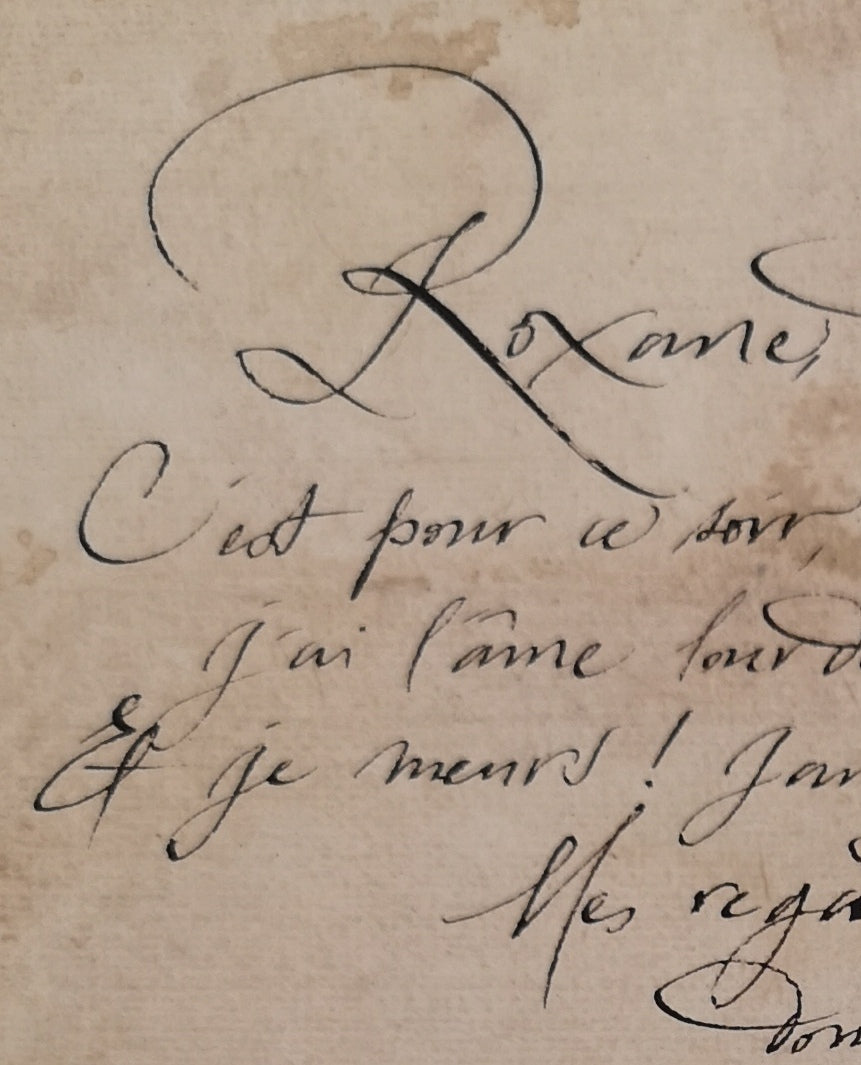 Roxane,
C'est pour ce soir,
j'ai l'âme lourd
Et je meurs ! Jam
Mes rega
don